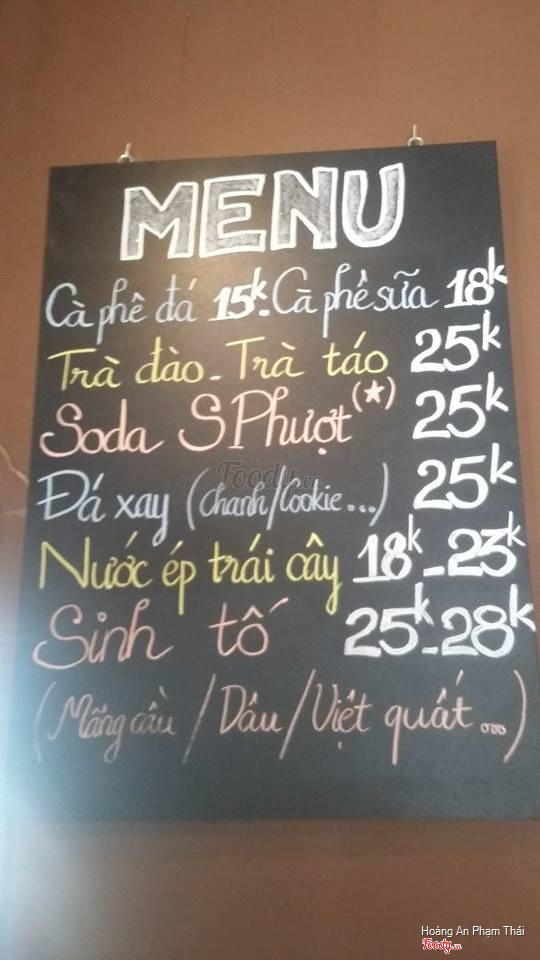 MENU
Cà phê đá 15k - Cà phê sữa 18k
Trà đào - Trà táo 25k
Soda SPhượt (★) 25k
Đá xay (chanh/Cookie...) 25k
Foody.vn
Nước ép trái cây 18k - 23k
Sinh tố 25k - 28k
(Mãng cầu / Dâu / Việt quất ...)
Hoàng An Phạm Thái
Foody.vn